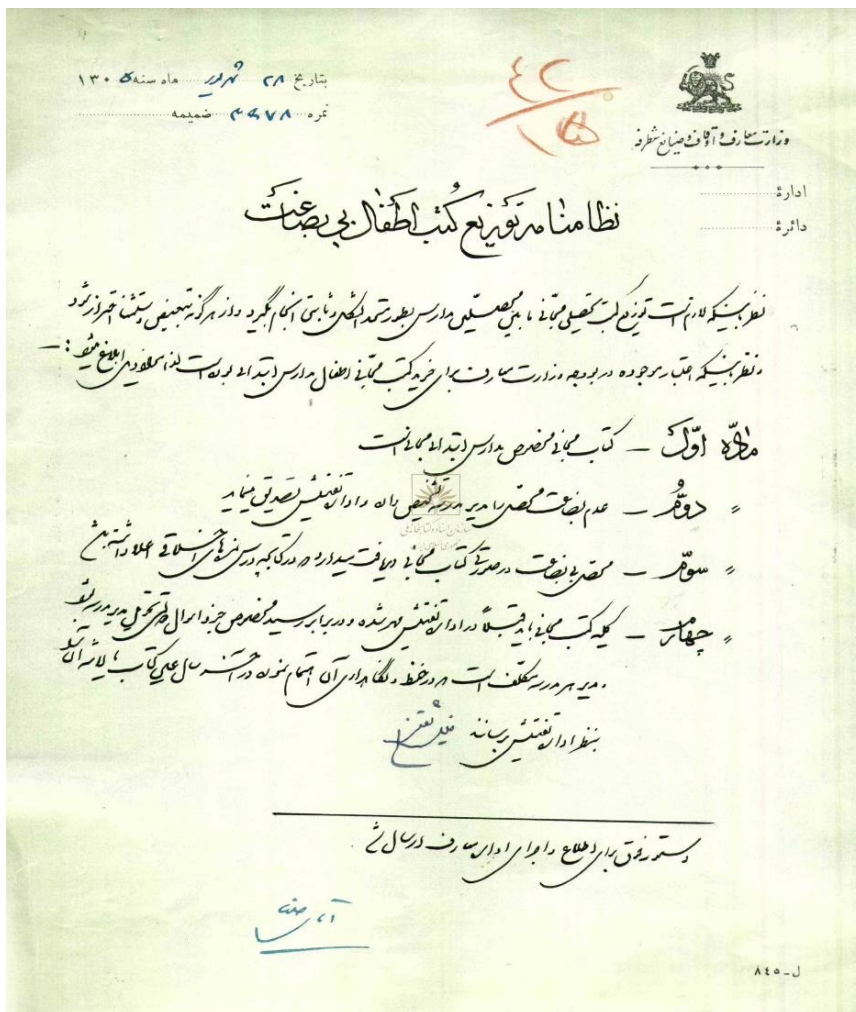 وزارت معارف و اوقاف و صنایع مستظرفه
بتاریخ ۲۸ شهریور ماه سنه ۱۳۰۵
نمره ۳۹۷۸ ضمیمه
۴۲
ادارهٔ
دائرهٔ
نظامنامه توزیع کُتب اطفال بی بضاعت
نظر باینکه لازم است توزیع کتب تحصیلی مجانی مابین محصلین مدارس بطور متحد الشکل و ثابتی انجام بگیرد و از هرگونه تبعیض و استثنا احتراز شود
و نظر باینکه اعتبار موجوده در بودجه وزارت معارف برای خرید کتب مجانی اطفال مدارس ابتدائی بوده است لذا مواد ذیل ابلاغ میشود :ـ
مادّه اوّل ـ کتاب مجانی مخصوص مدارس ابتدائی مجانی است
〃 دوّم ـ عدم بضاعت محصل را مدیر مدرسه تشخیص داده و اداره تفتیش تصدیق مینماید
〃 سوّم ـ محصل بی بضاعت در صورتی کتاب مجانی دریافت میدارد که در کتابچه درس نمره های اخلاقی اعلا داشته باشد
〃 چهارم ـ کلیه کتب مجانی باید قبلاً در اداره تفتیش مهر شده و در برابر رسید مخصوص جزو اموال دولتی تحویل مدیر مدرسه شود
مدیر مدرسه مکلف است که در حفظ و نگاهداری آن اهتمام نموده در آخر سال عین کتاب یا لاشه آن را
بنظر اداره تفتیش برساند
دستور فوق برای اطلاع و اجرای اداره معارف ارسال شد
سازمان اسناد و کتابخانه ملی
جمهوری اسلامی ایران
ل-۸۴۵